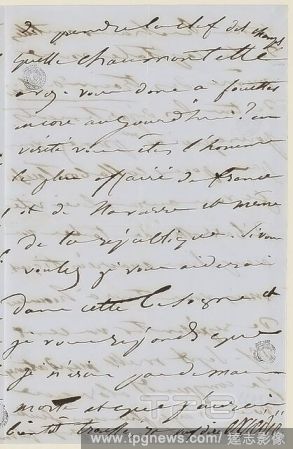 de prendre la clef des champs
quelle
avez vous donc à fouetter
encore aujourd'hui ? en
vérité vous êtes l'homme
le plus affairé de France
et de Navarre et même
de la république. Si vous
voulez je vous aiderai
dans cette besogne et
je vous réponds que
je n'irai pas de main
morte et que j'aurai
bientôt
TPG
www.tpgnews.com/ 達志影像